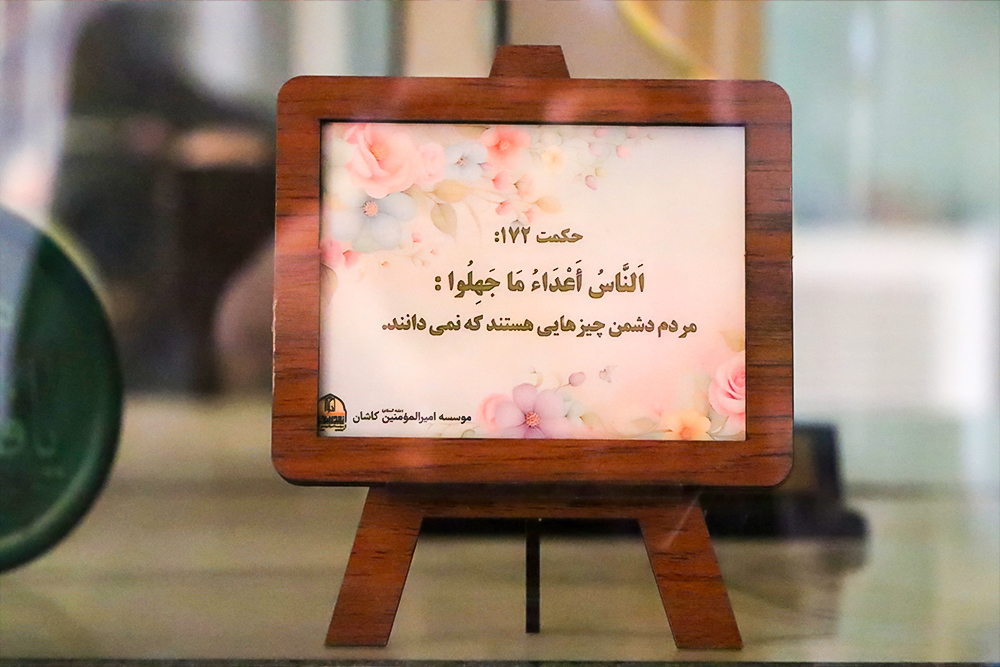 حکمت ۱۷۲:
اَلنَّاسُ أَعْدَاءُ مَا جَهِلُوا :
مردم دشمن چیزهایی هستند که نمی دانند.
موسسه امیرالمؤمنین کاشان